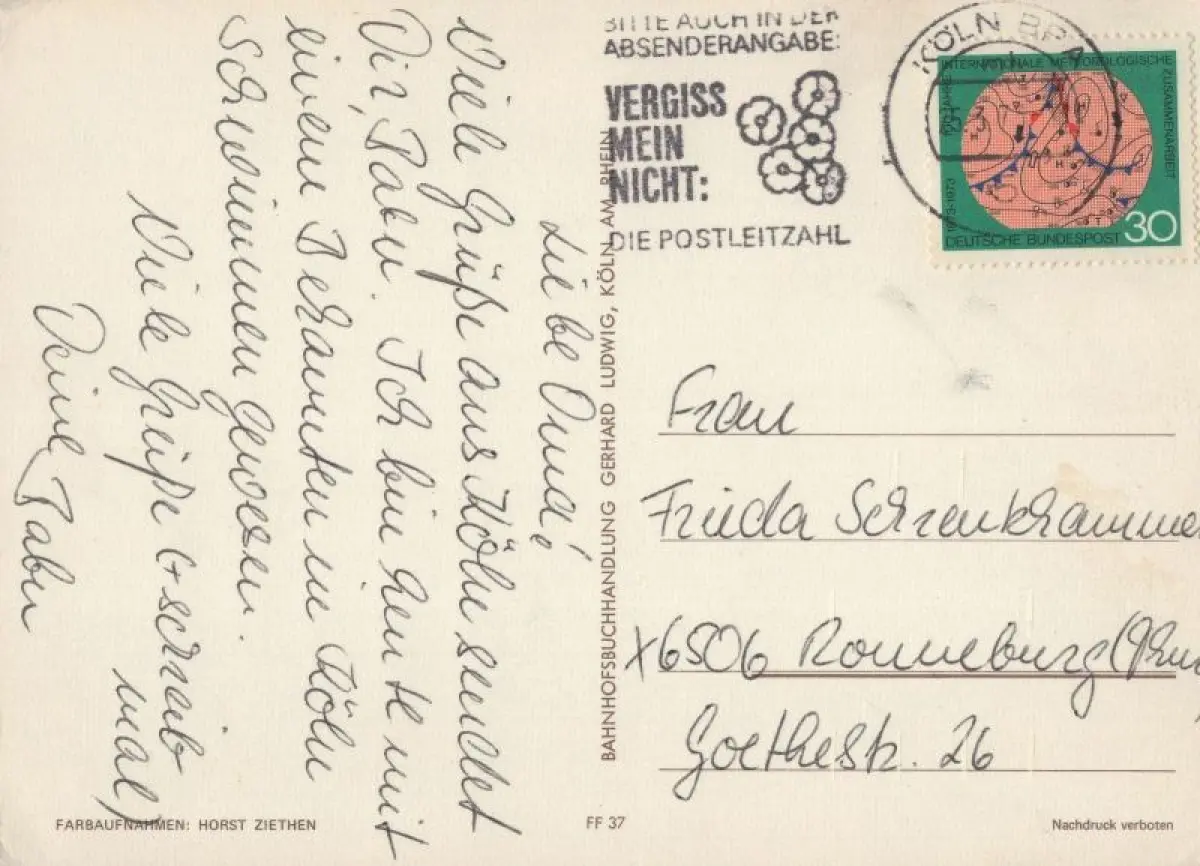 Liebe Oma!
Viele Grüße aus Köln sendet
Dir, Babu. Ich bin heute mit
einem Bekannten in Köln
Schwimmen gewesen.
Viele Grüße (+ schreib
mal)
Deine Babu
BITTE AUCH IN DER
ABSENDERANGABE:
VERGISS
MEIN
NICHT:
DIE POSTLEITZAHL
KÖLN BPA
100 JAHRE INTERNATIONALE METEOROLOGISCHE
ZUSAMMENARBEIT
1873-1973
DEUTSCHE BUNDESPOST 30
BAHNHOFSBUCHHANDLUNG GERHARD LUDWIG, KÖLN AM RHEIN
Frau
Frieda Schrenkhammer
X6506 Ronneburg (Thür
Goethestr. 26
FARBAUFNAHMEN: HORST ZIETHEN
FF 37
Nachdruck verboten